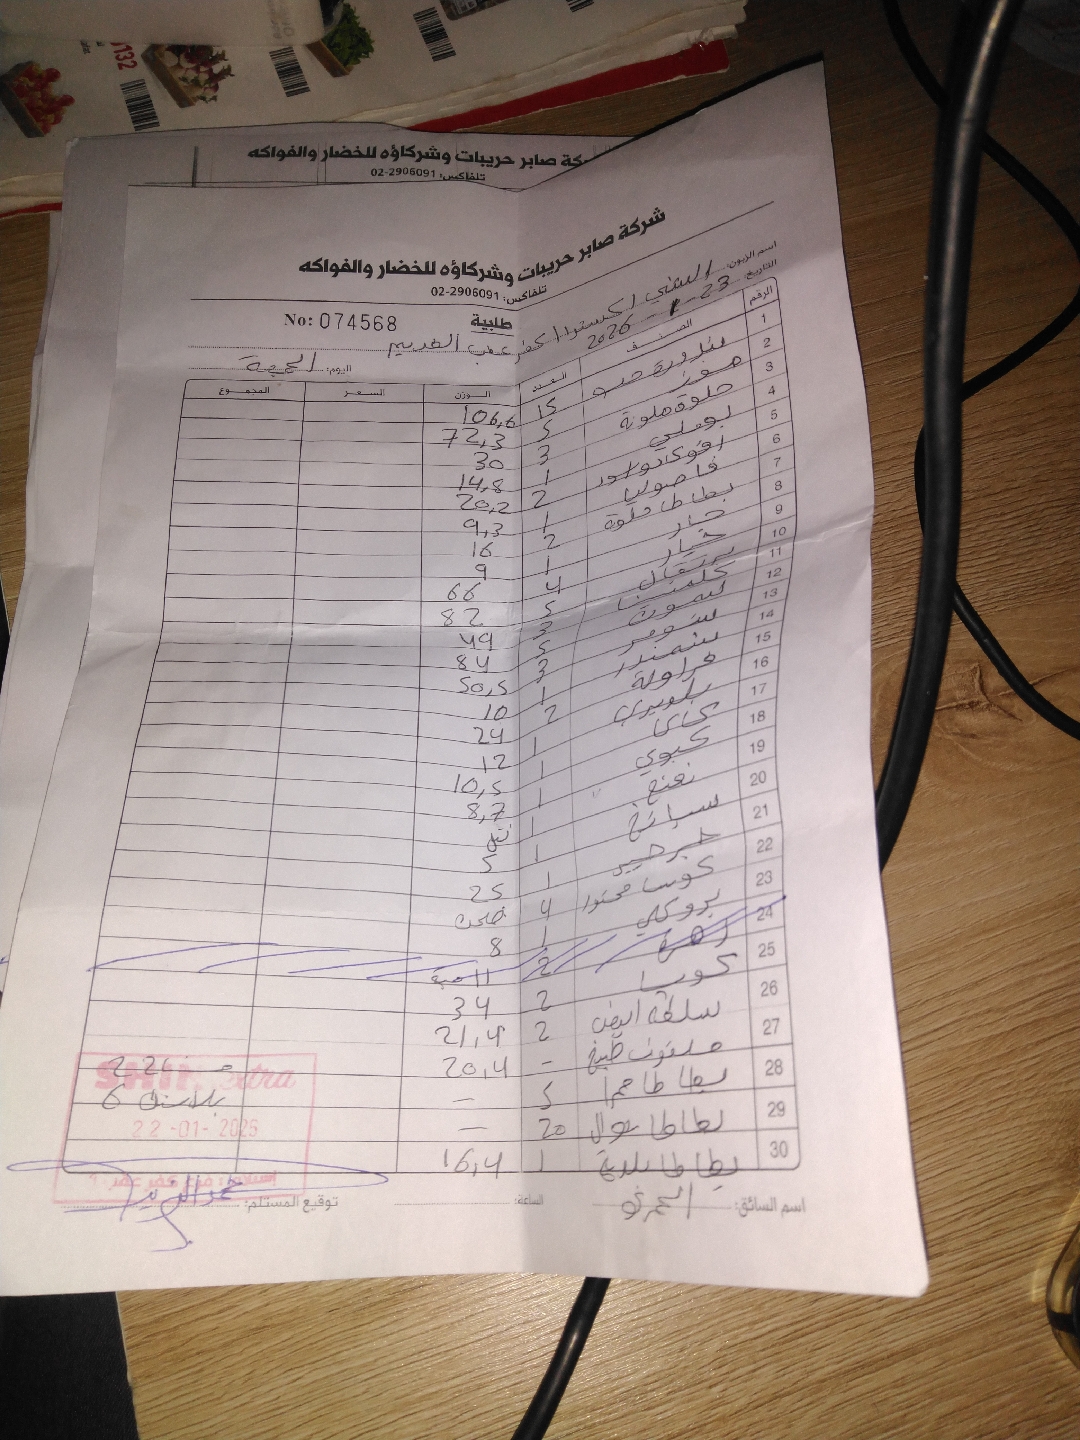 132
شركة صابر حريبات وشركاؤه للخضار والفواكه
تلفاكس: 02-2906091
شركة صابر حريبات وشركاؤه للخضار والفواكه
تلفاكس: 02-2906091
No: 074568
طلبية
اسم الزبون: كفر عقب القديم
التاريخ: 23-1-2026
اليوم: الجمعة
الرقم الصنف العدد الوزن السعر المجموع
1 بندورة 15 106,6
2 موز 5 72,3
3 حلوة ملونة 3 30
4 1 14,8
5 2 20,2
6 فاصوليا 1 9,3
7 بطاطا حلوة 2 16
8 1 9
9 خيار 4 66
10 برتقال 5 82
11 كلمنتينا 3 49
12 ليمون 5 84
13 شومر 3 50,5
14 شمندر 1 10
15 فراولة 2 24
16 1 12
17 1 10,5
18 كيوي 1 8,7
19 نعنع 1
20 سبانخ 1 5
21 جرجير 1 25
22 كوسا 4
23 بروكلي 1 8
24 2
25 كوسا 2 34
26 2 21,4
27 ملفوف طبيخ - 20,4
28 بطاطا حمرا 5 -
29 بطاطا 20 -
30 بطاطا بلدية 1 16,4
اسم السائق:
الساعة:
توقيع المستلم:
22-01-2026